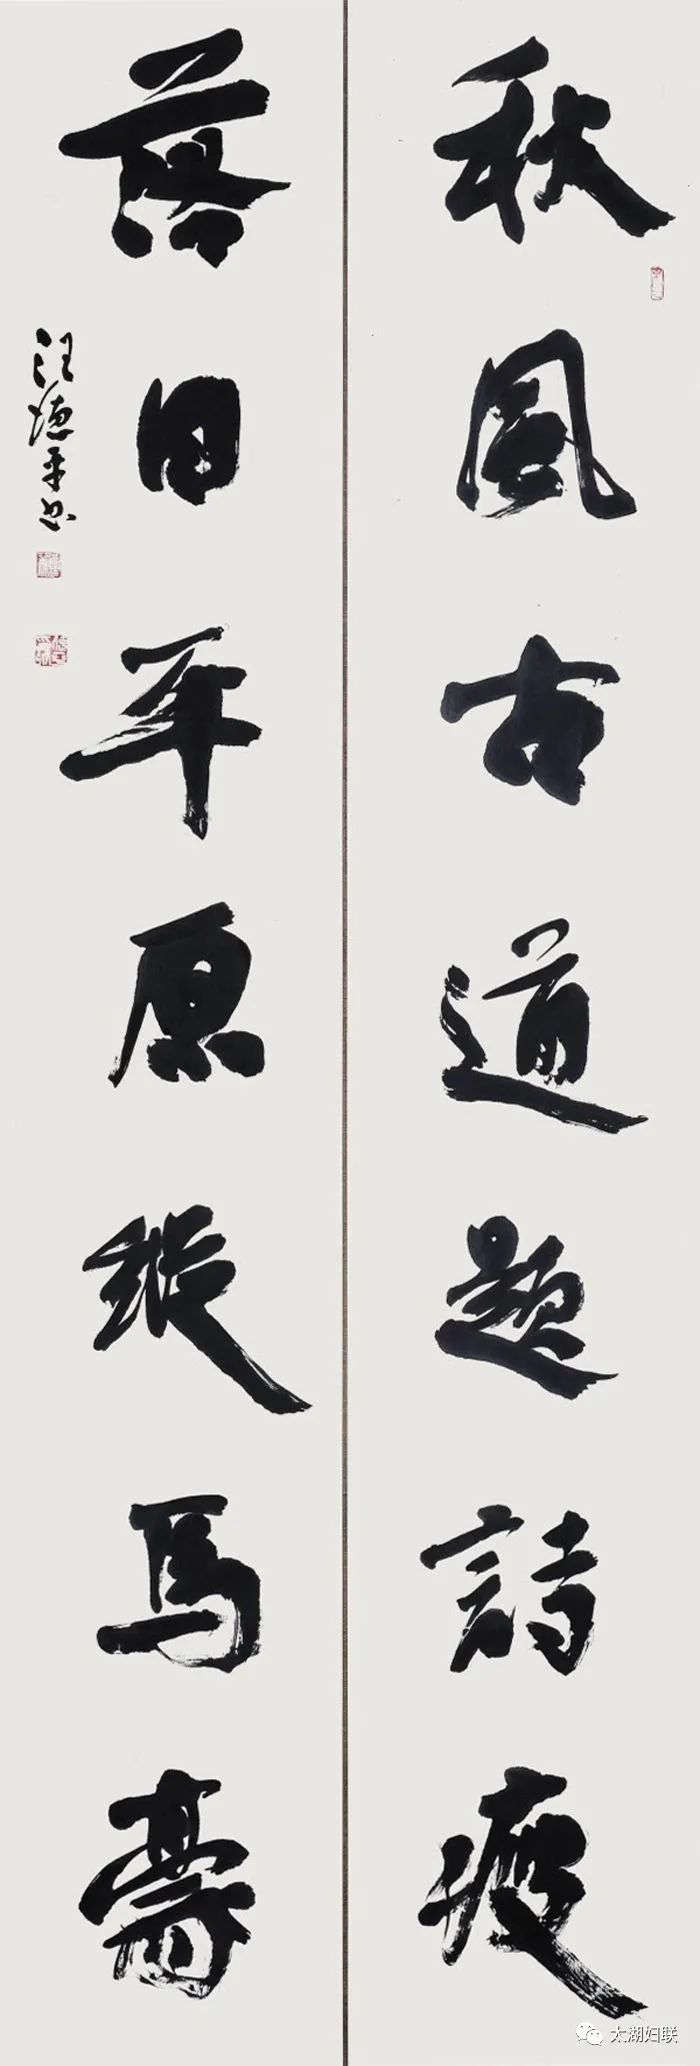 秋風古道題詩瘦
落日平原縱馬豪
汪德平书
太湖妇联